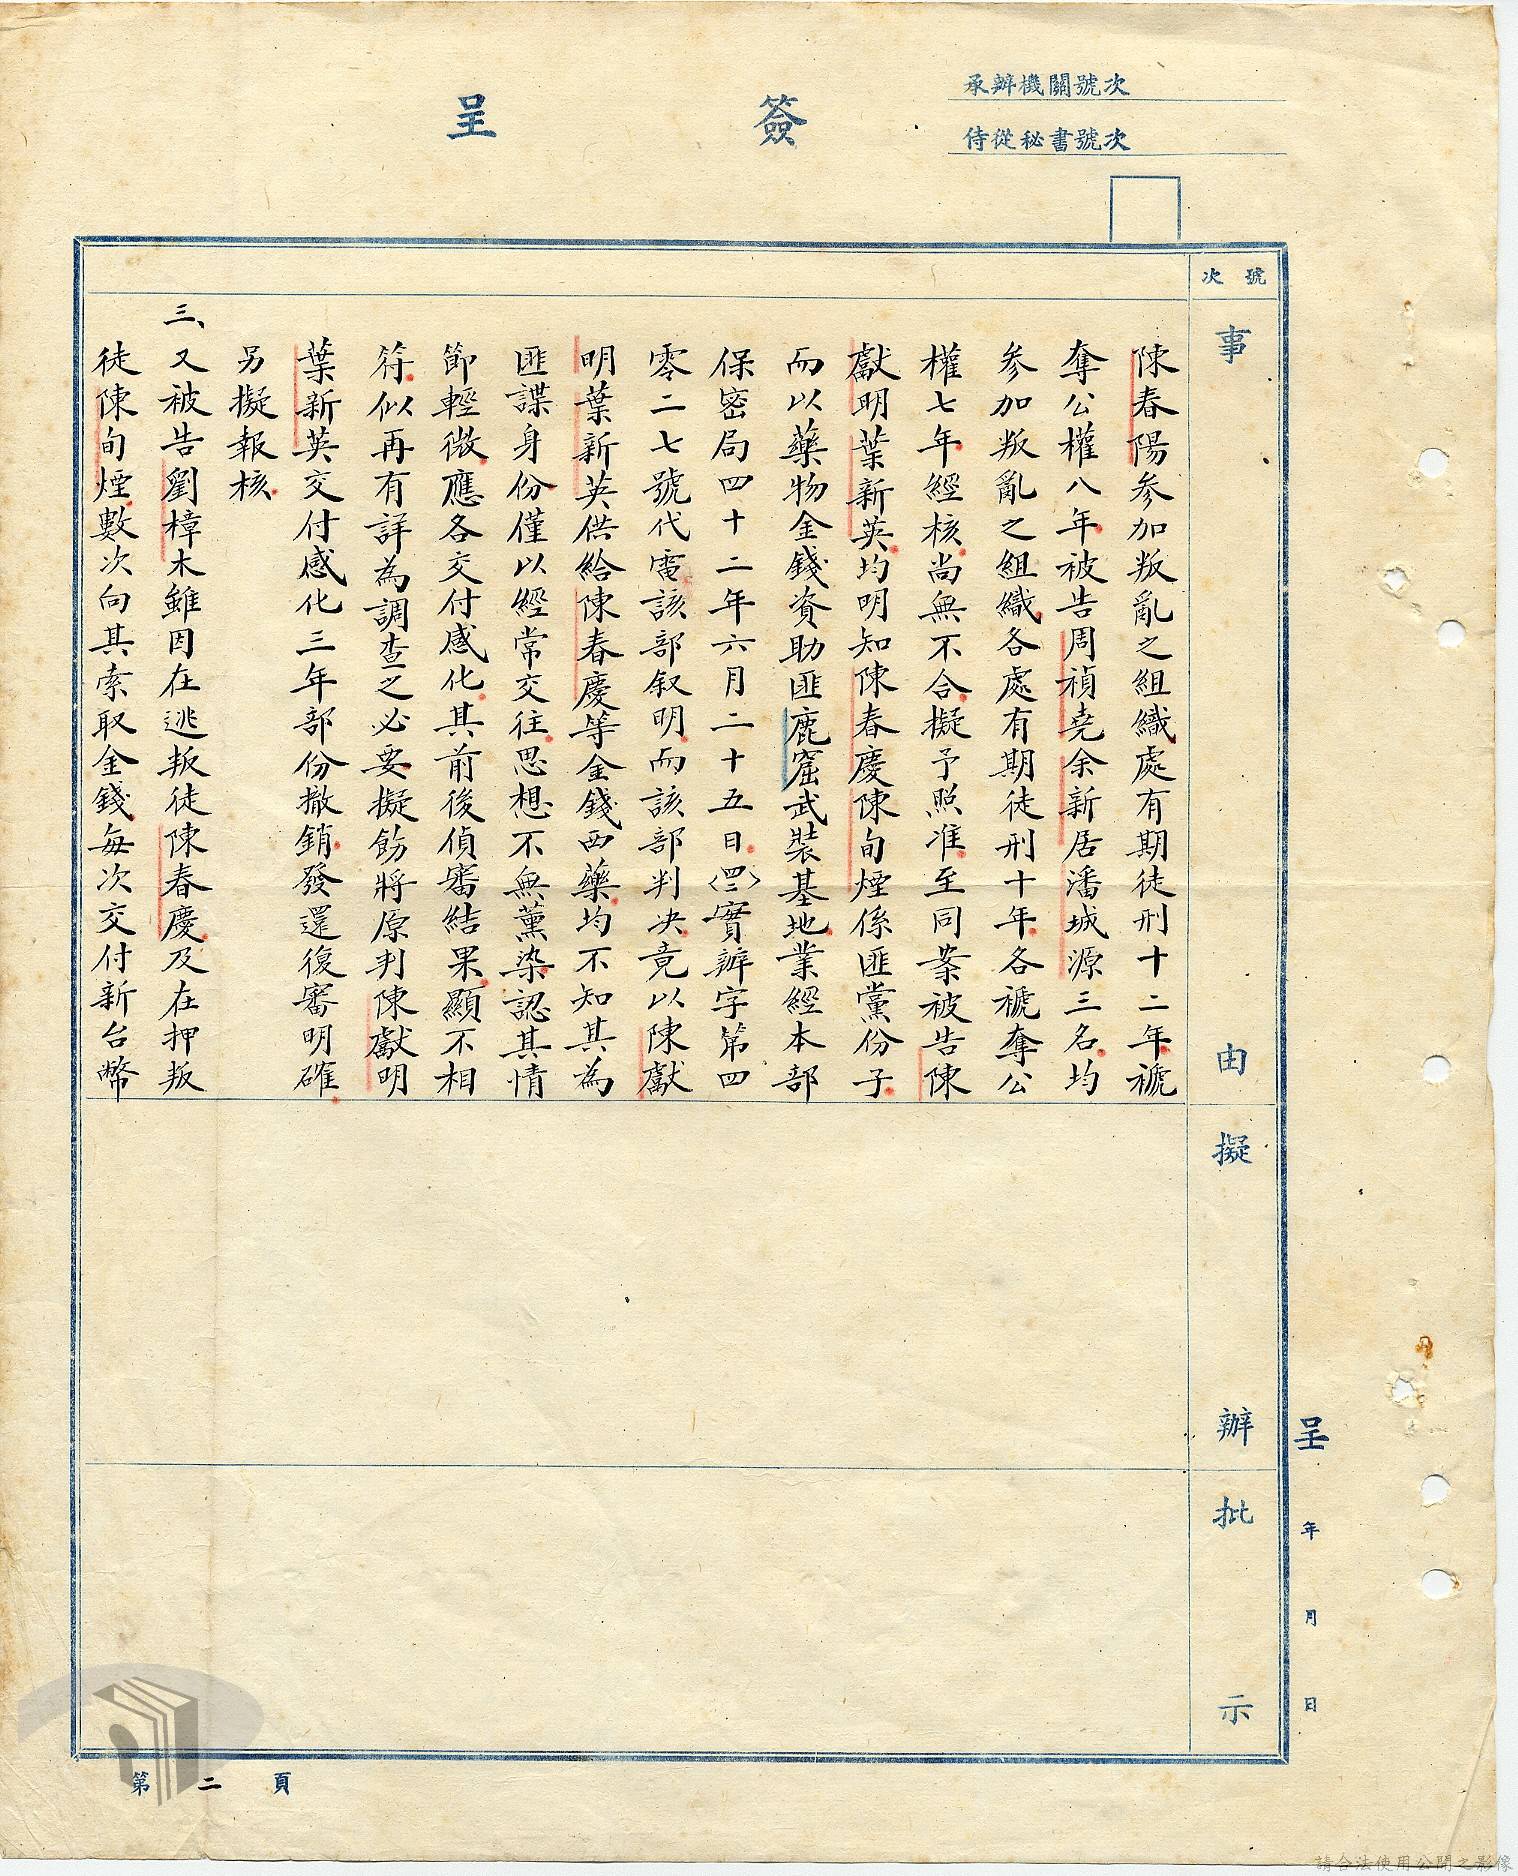 承辦機關號次
侍從秘書號次
簽呈
號次
事由
擬辦
批示
陳春陽參加叛亂之組織處有期徒刑十二年褫
奪公權八年被告周禎堯余新居潘城源三名均
參加叛亂之組織各處有期徒刑十年各褫奪公
權七年經核尚無不合擬予照准至同案被告陳
獻明葉新英均明知陳春慶陳旬煙係匪黨份子
而以藥物金錢資助匪鹿窟武裝基地業經本部
保密局四十二年六月二十五日〈四二〉實辦字第四
零二七號代電該部叙明而該部判决竟以陳獻
明葉新英供給陳春慶等金錢西藥均不知其為
匪諜身份僅以經常交往思想不無薰染認其情
節輕微應各交付感化其前後偵審結果顯不相
符似再有詳為調查之必要擬飭將原判陳獻明
葉新英交付感化三年部份撤銷發還復審明確
另擬報核
三、又被告劉樟木雖因在逃叛徒陳春慶及在押叛
徒陳旬煙數次向其索取金錢每次交付新台幣
呈
年
月
日
第二頁
請合法使用公開之影像